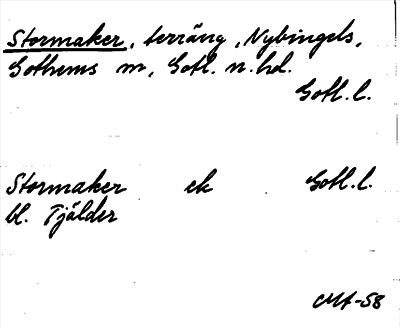 Stormaker, terräng, Nybingels,
Gothems sn, Gotl. n. hd.
Gotl. l.
Stormaker ek Gotl. l.
bl. Tjälder
CMA-58